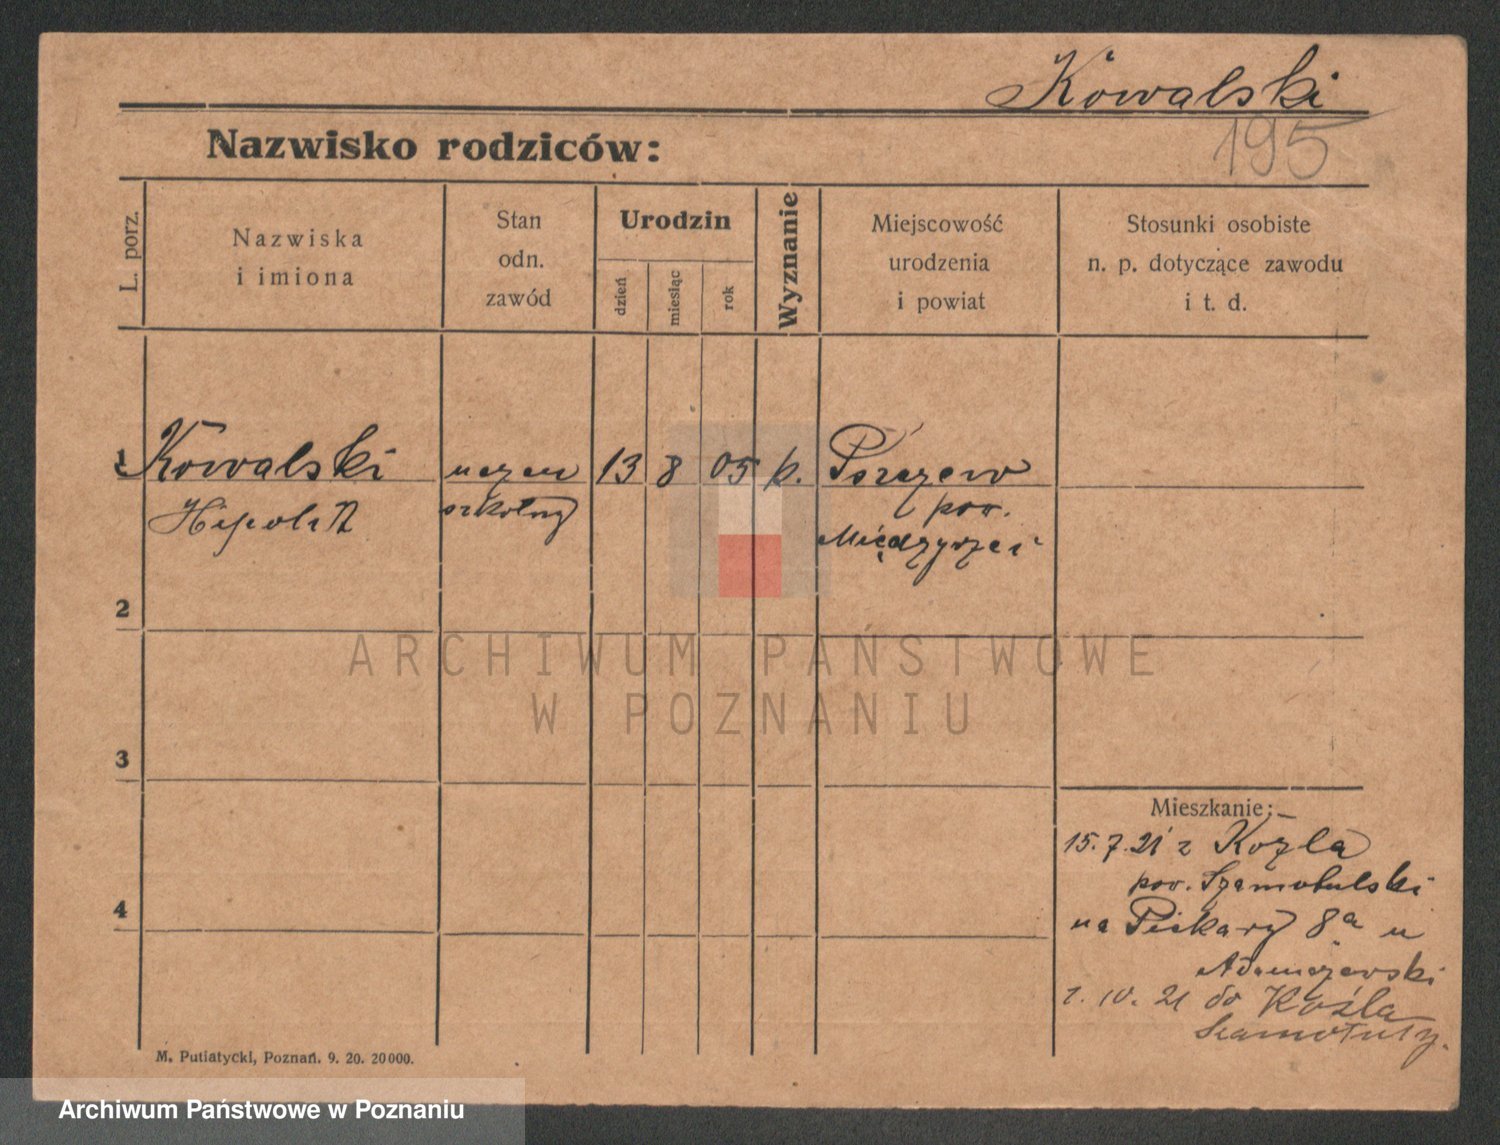 Kowalski
195
Nazwisko rodziców:
L. porz.
Nazwiska
i imiona
Stan
odn.
zawód
Urodzin
dzień
miesiąc
rok
Wyznanie
Miejscowość
urodzenia
i powiat
Stosunki osobiste
n. p. dotyczące zawodu
i t. d.
1 Kowalski uczeń 13 8 05 k. Pszczew
Hipolit szkolny pow.
Międzyrzecz
2
ARCHIWUM PAŃSTWOWE
W POZNANIU
3
4
Mieszkanie:
15.7.21 z Kozla
pow. Szamotulski
na Piekary 8a u
Adamczewski
1. 10. 21 do Koźla
Szamotuły.
M. Putiatycki, Poznań. 9. 20. 20000.
Archiwum Państwowe w Poznaniu